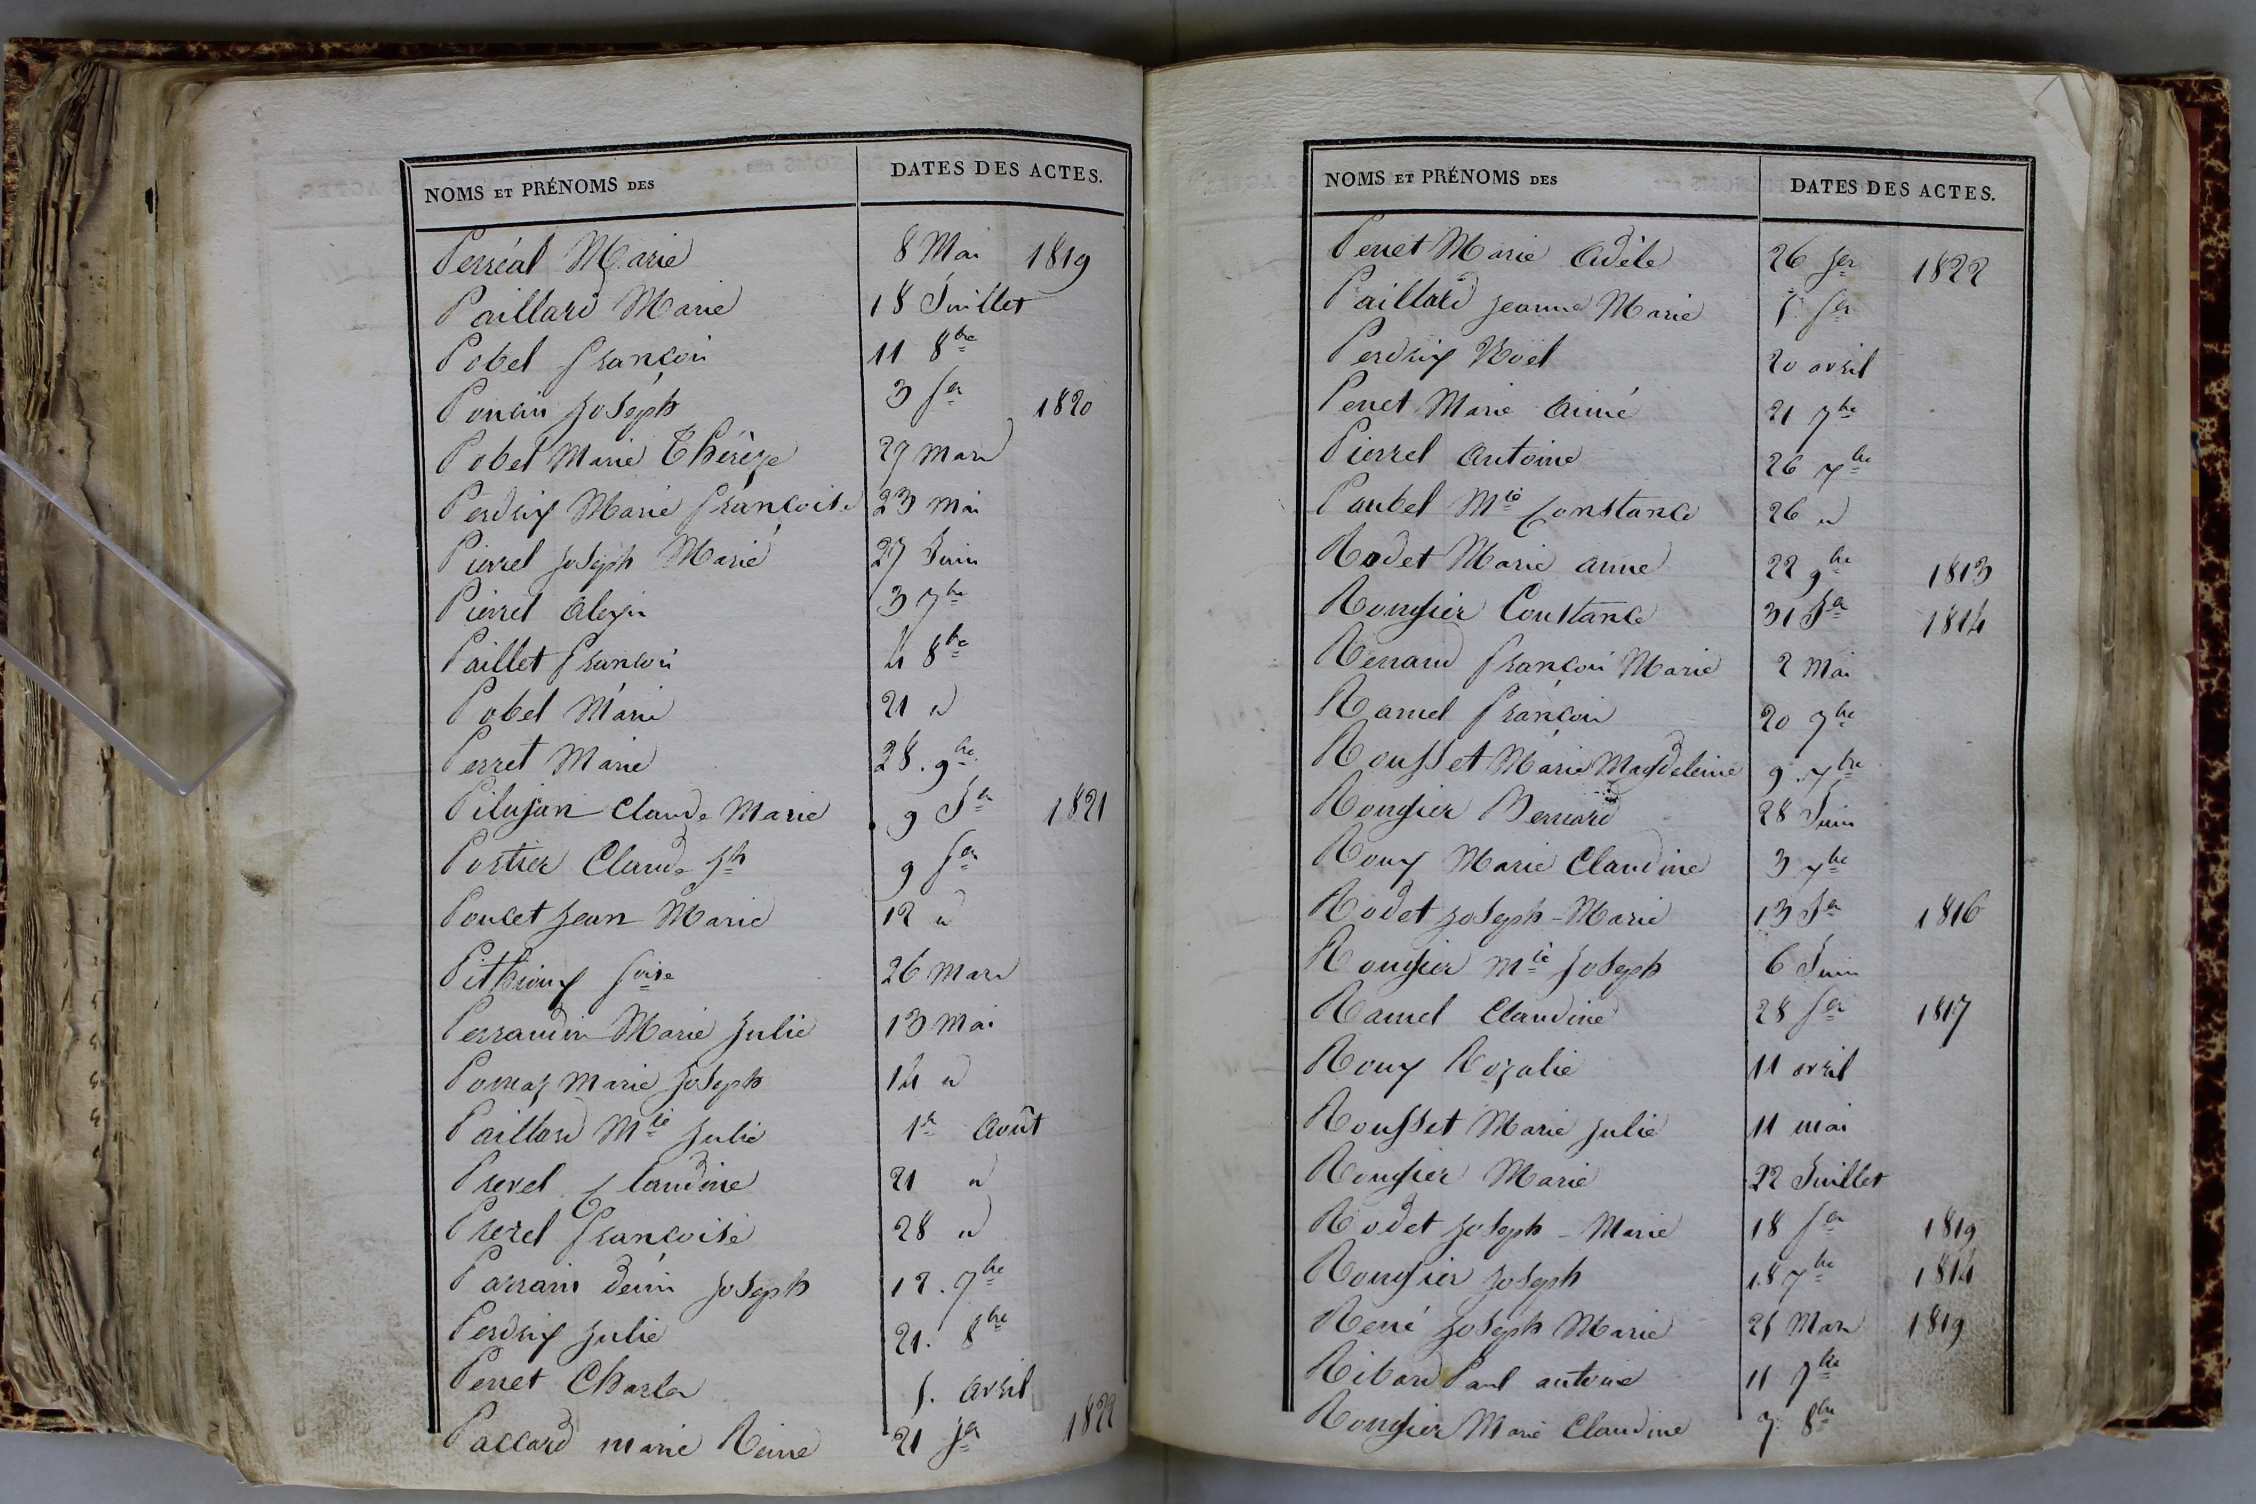 NOMS ET PRÉNOMS DES DATES DES ACTES.
Perréal Marie 8 Mai 1819
Paillard Marie 18 Juillet
Pobel françois 11 8bre
Ponain Joseph 3 fer 1820
Pobel Marie Thérèze 29 mars
Perdrix Marie françoise 23 mai
Pierrel Joseph Marie 27 Juin
Pierrel Alexis 3 7bre
Paillet françois 4 8bre
Pobel Marie 21 "
Perret Marie 28. 9bre
Pilujan Claude Marie 9 Jer 1821
Portier Claude Jph 9 fer
Poncet Jean Marie 12 "
Pithioux foise 26 mars
Perraudin Marie Julie 13 mai
Marie Joseph 14 "
Paillard Mie Julie 1er Août
Prevel Claudine 21 "
Prevel françoise 28 "
Parrain Denis Joseph 12. 7bre
Perdrix Julie 21. 8bre
Perret Charles 5. avril
Paccard marie Reine 21 Jer 1822
NOMS ET PRÉNOMS DES DATES DES ACTES.
Perret Marie Adèle 26 Jer 1822
Paillard Jeanne Marie 5 fer
Perdrix Noël 20 avril
Perret Marie Aimé 21 7bre
Pierrel Antoine 26 7bre
Paubel Mie Constance 26 "
Rodet Marie anne 22 9bre 1813
Rongier Constance 31 Jer 1814
Renaud françois Marie 2 Mai
Ramel françois 20 7bre
Rousset Marie Magdeleine 9. 7bre
Rongier Bernard 28 Juin
Roux Marie Claudine 3 7bre
Rodet Joseph-Marie 13 Jer 1816
Rongier Mie Joseph 6 Juin
Ramel Claudine 28 fer 1817
Roux Rozalie 11 avril
Rousset Marie Julie 11 mai
Rongier Marie 22 Juillet
Rodet Joseph-Marie 18 fer 1819
Rongier Joseph 18 7bre 1814
René Joseph Marie 25 Mars 1819
Ribard Paul antoine 11 7bre
Rongier Marie Claudine 7 8bre